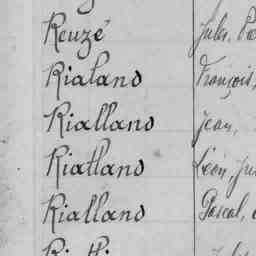 Reuzé
Rialand François,
Rialland Jean,
Riatland Léon, Ju
Rialland Pascal,